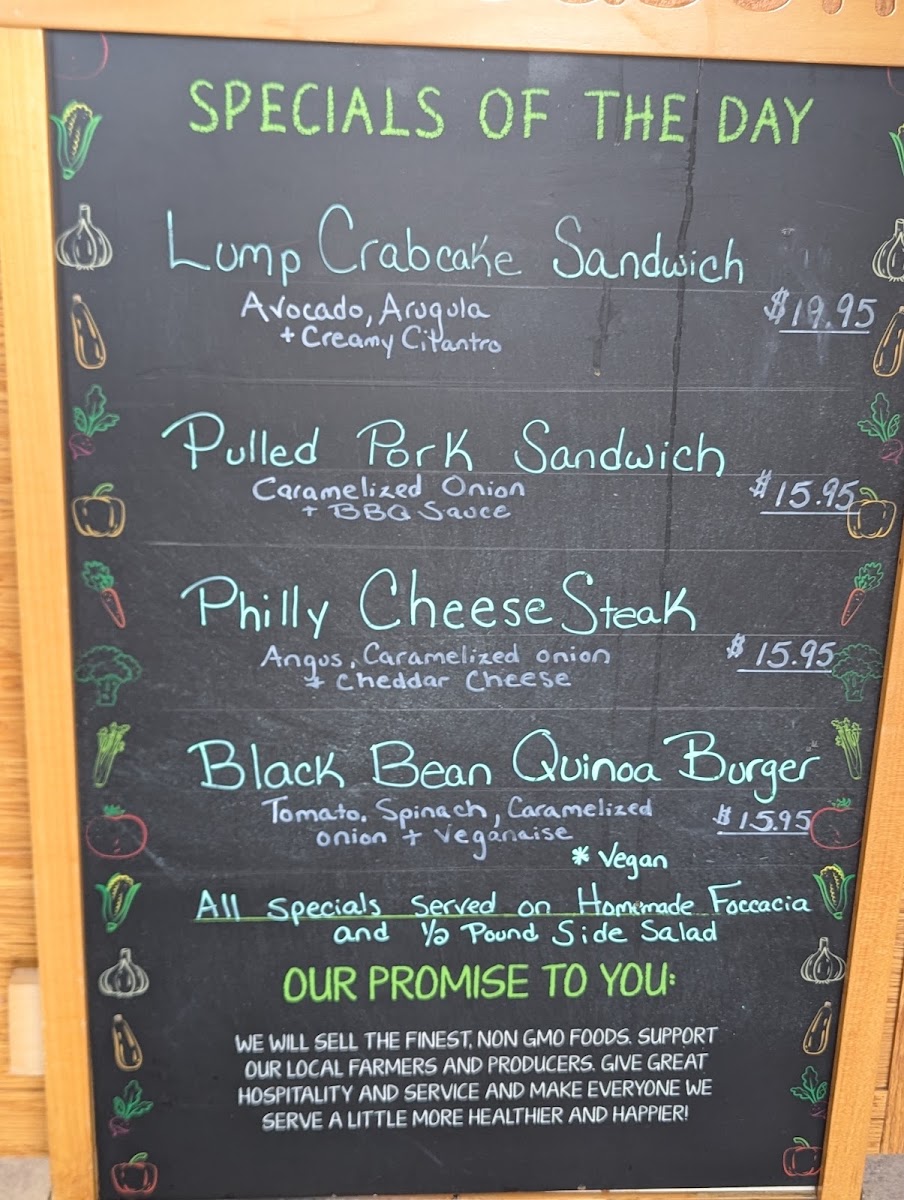 SPECIALS OF THE DAY
Lump Crabcake Sandwich
Avocado, Arugula
+ Creamy Cilantro
$19.95
Pulled Pork Sandwich
Caramelized Onion
+ BBQ Sauce
$15.95
Philly Cheese Steak
Angus, Caramelized onion
+ Cheddar Cheese
$15.95
Black Bean Quinoa Burger
Tomato, Spinach, Caramelized
onion + Veganaise
$15.95
* Vegan
All specials served on Homemade Foccacia
and 1/2 Pound Side Salad
OUR PROMISE TO YOU:
WE WILL SELL THE FINEST, NON GMO FOODS. SUPPORT
OUR LOCAL FARMERS AND PRODUCERS. GIVE GREAT
HOSPITALITY AND SERVICE AND MAKE EVERYONE WE
SERVE A LITTLE MORE HEALTHIER AND HAPPIER!